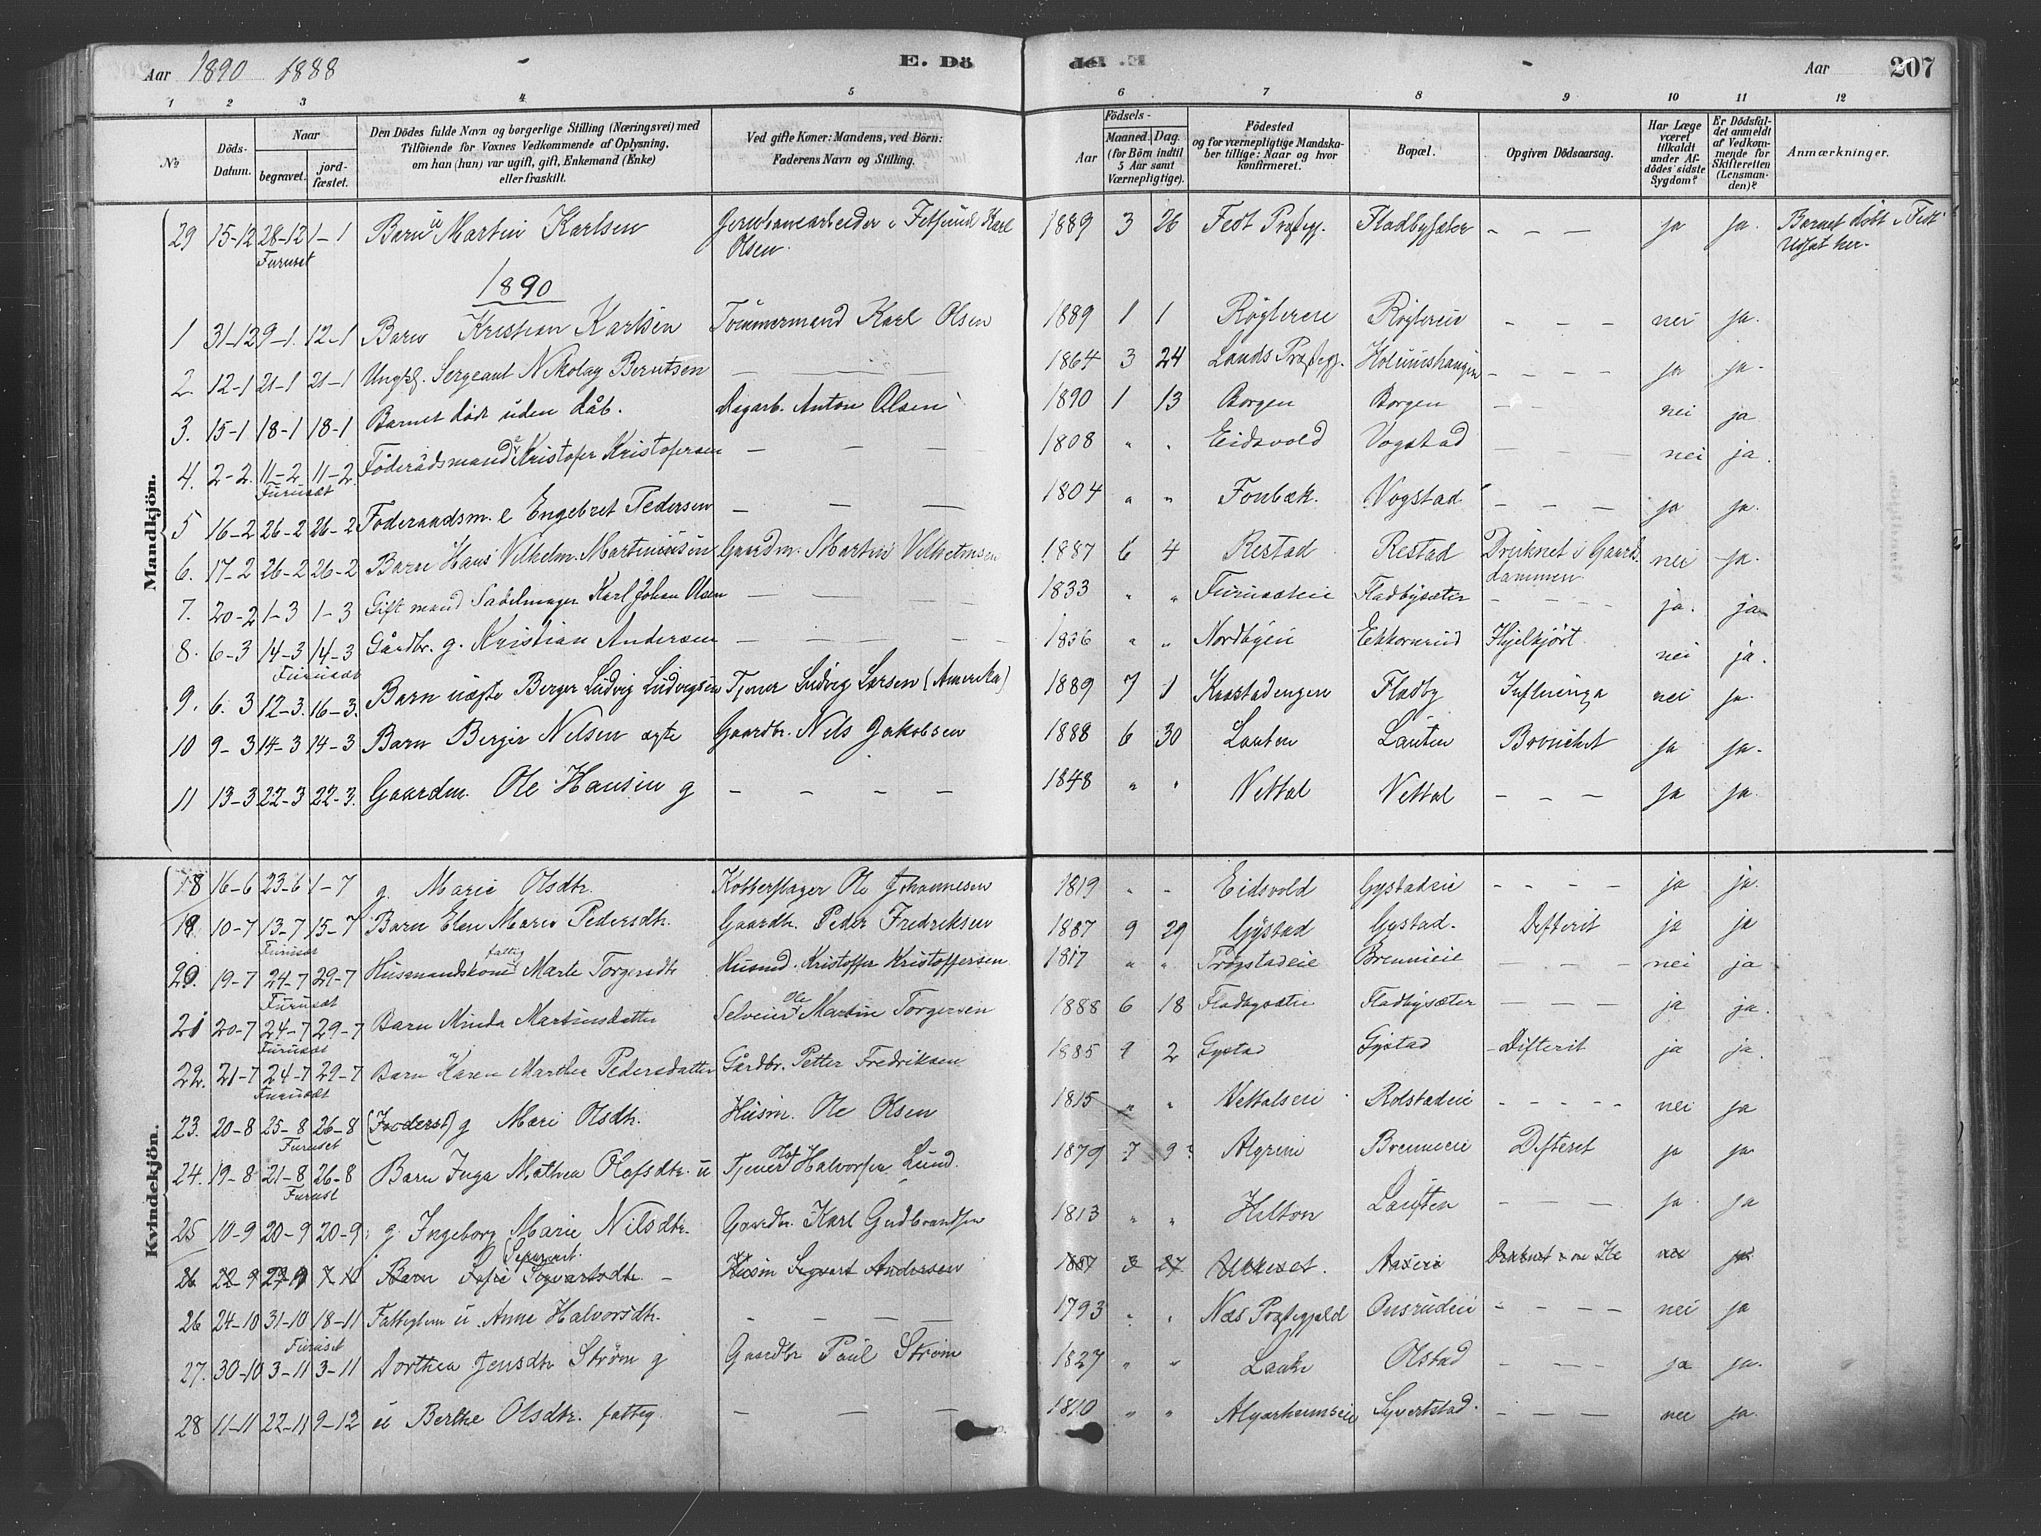 Aar 1890 1888 E. Dö
de. E Aar 207
1 2 3 4 5 6 7 8 9 10 11 12
No Döds-Datum. Naar begravet. jord-fæstet. Den Dödes fulde Navn og borgerlige Stilling (Næringsvei) med Tilföiende for Voxnes Vedkommende af Oplysning, om han (hun) var ugift, gift, Enkemand (Enke) eller fraskilt. Ved gifte Koner: Mandens, ved Börn: Faderens Navn og Stilling. Aar Födsels- Maaned. Dag. (for Börn indtil 5 Aar samt Værnepligtige). Födested og for værnepligtige Mandskaber tillige: Naar og hvor konfirmeret. Bopæl. Opgiven Dödsaarsag. Har Læge været tilkaldt under Afdödes sidste Sygdom? Er Dödsfaldet anmeldt af Vedkommende for Skifteretten (Lensmanden)? Anmærkninger.
Mandkjön.
29 15-12 28-12 1-1 Barn u Martin Karlsen Karl 1889 3 26 Fedt Præstegj. Fladbysæter - - - ja ja. Barnet dödt i Fedt
Furuset Olsen. her.
1890
1 31-12 9-1. 12-1 Barn Kristian Karlsen Tömmermand Karl Olsen 1889 1 1 Røgtereie Røgtereie - - - nei ja.
2. 12-1 21-1 21-1 Ungkl. Sergeant Nikolay Berntsen - - - 1864 3 24 Lands Præstegj. - - - ja ja.
3. 15-1 18-1 18-1 Barnet dödt uden dåb. Dagarb. Anton Olsen 1890 1 13 Borgen Borgen - - nei ja
4. 2-2. 11-2 11-2. Föderådsmand e Kristofer Kristofersen - - - 1808 " " Eidsvold Vogstad nei ja.
Furusæt
5 16-2 26-2 26-2 Föderaadsm. e Engebret Pedersen - - - 1804 " " Fonbæk. Vogstad - - - ja ja.
6. 17-2 26-2 26-2 Barn Hans Vilhelm Martiniusen Gaardm. Martin Vilhelmsen 1887 6 4 Restad Restad Druknet i Gaards- nei ja.
dammen
7. 20-2 1-3 1-3 Gift mand Sadelmager Karl Johan Olsen - - - 1833 " " Furusæteie Fladbysæter - - - ja. ja
8. 6-3 14-3 14-3 Gårdbr. g. Kristian Andersen - - - 1836 " " Nordbyeie Ekkornrud nei ja.
Furusæt
9. 6. 3 12-3. 16-3. Barn uægte Berger Ludvig Ludvigsen Tjener Ludvig Larsen (Amerika) 1889 7 1 Kraastadengen Fladby Influinga nei ja.
10 9-3 14-3 14-3 Barn Berger Nilsen ægte Gaardbr. Nils Jakobsen 1888 6 30 Lauten Lauten Bronchit ja ja.
11 13-3 22-3 22-3. Gaardm. Ole Hansen g - - - - 1848 " " Nettal Nettal - - - ja ja.
Kvindekjön.
18 16-6 23-6 1-7 g Marie Olsdtr. Ole Johannesen 1819 " " Eidsvold Gystadeie - - - - ja ja.
19. 10-7 13-7 15-7 Barn Elen Marie Pedersdtr. Gaardbr. Peder Fredriksen 1887 9 29 Gystad Gystad. Difterit ja ja
Furuset
20. 19-7 24-7 29-7 Husmandskone fattig Marte Torgersdtr Husmd. Kristoffer Kristoffersen 1817 " " Trøgstadeie Brenneie nei ja
Furusæt
21 20-7 24-7 29-7 Barn Minda Martinsdatter Selveier Ole Martin Torgersen 1888 6 18 Fladbysæter Fladbysæter - - - ja ja.
Furusæt
22. 21-7 24-7 29-7 Barn Karen Marthea Pedersdatter Gårdbr. Petter Fredriksen 1885 9 2 Gystad Gystad Difterit ja ja.
Furusæt
23. 20-8 25-8 26-8 (Foderst) g Mari Olsdtr. Husm. Ole Olsen 1815 " " Nettalseie Rolstadeie - - - - - nei ja
Furuset
24. 19-8 21-8 26-8 Barn Inga Mathea Olafsdtr. u Tjener Olaf Halvorsen Lund. 1879 7 9 Algrim Brenneie Difterit ja ja
Furuset
25 10-9 20-9 20-9 g Ingeborg Marie Nilsdtr. Gaardbr. Karl Gudbrandsen 1813 " " Hilton Lauten - - - ja ja
26 22 9 Barn Sofie Sigvartsdtr. - Husm Sigvart Andersen 1887 3 27 nei ja.
26 24-10 31-10 18-11 Fattiglem u. Anne Halvorsdtr. - - - 1793 " " Næs Præstegjeld Onsrudeie - - - - nei ja
Furuset
27. 30-10 3-11 3-11 Dorthea Jensdtr Strøm g Gaardbr Paul Strøm 1827 " " Laake Olstad - - - ja ja.
28 11-11 22-11 9-12 u Berthe Olsdtr. fattig. - - - 1810 " " Algarheimseie Syverstad. - - - - nei ja.